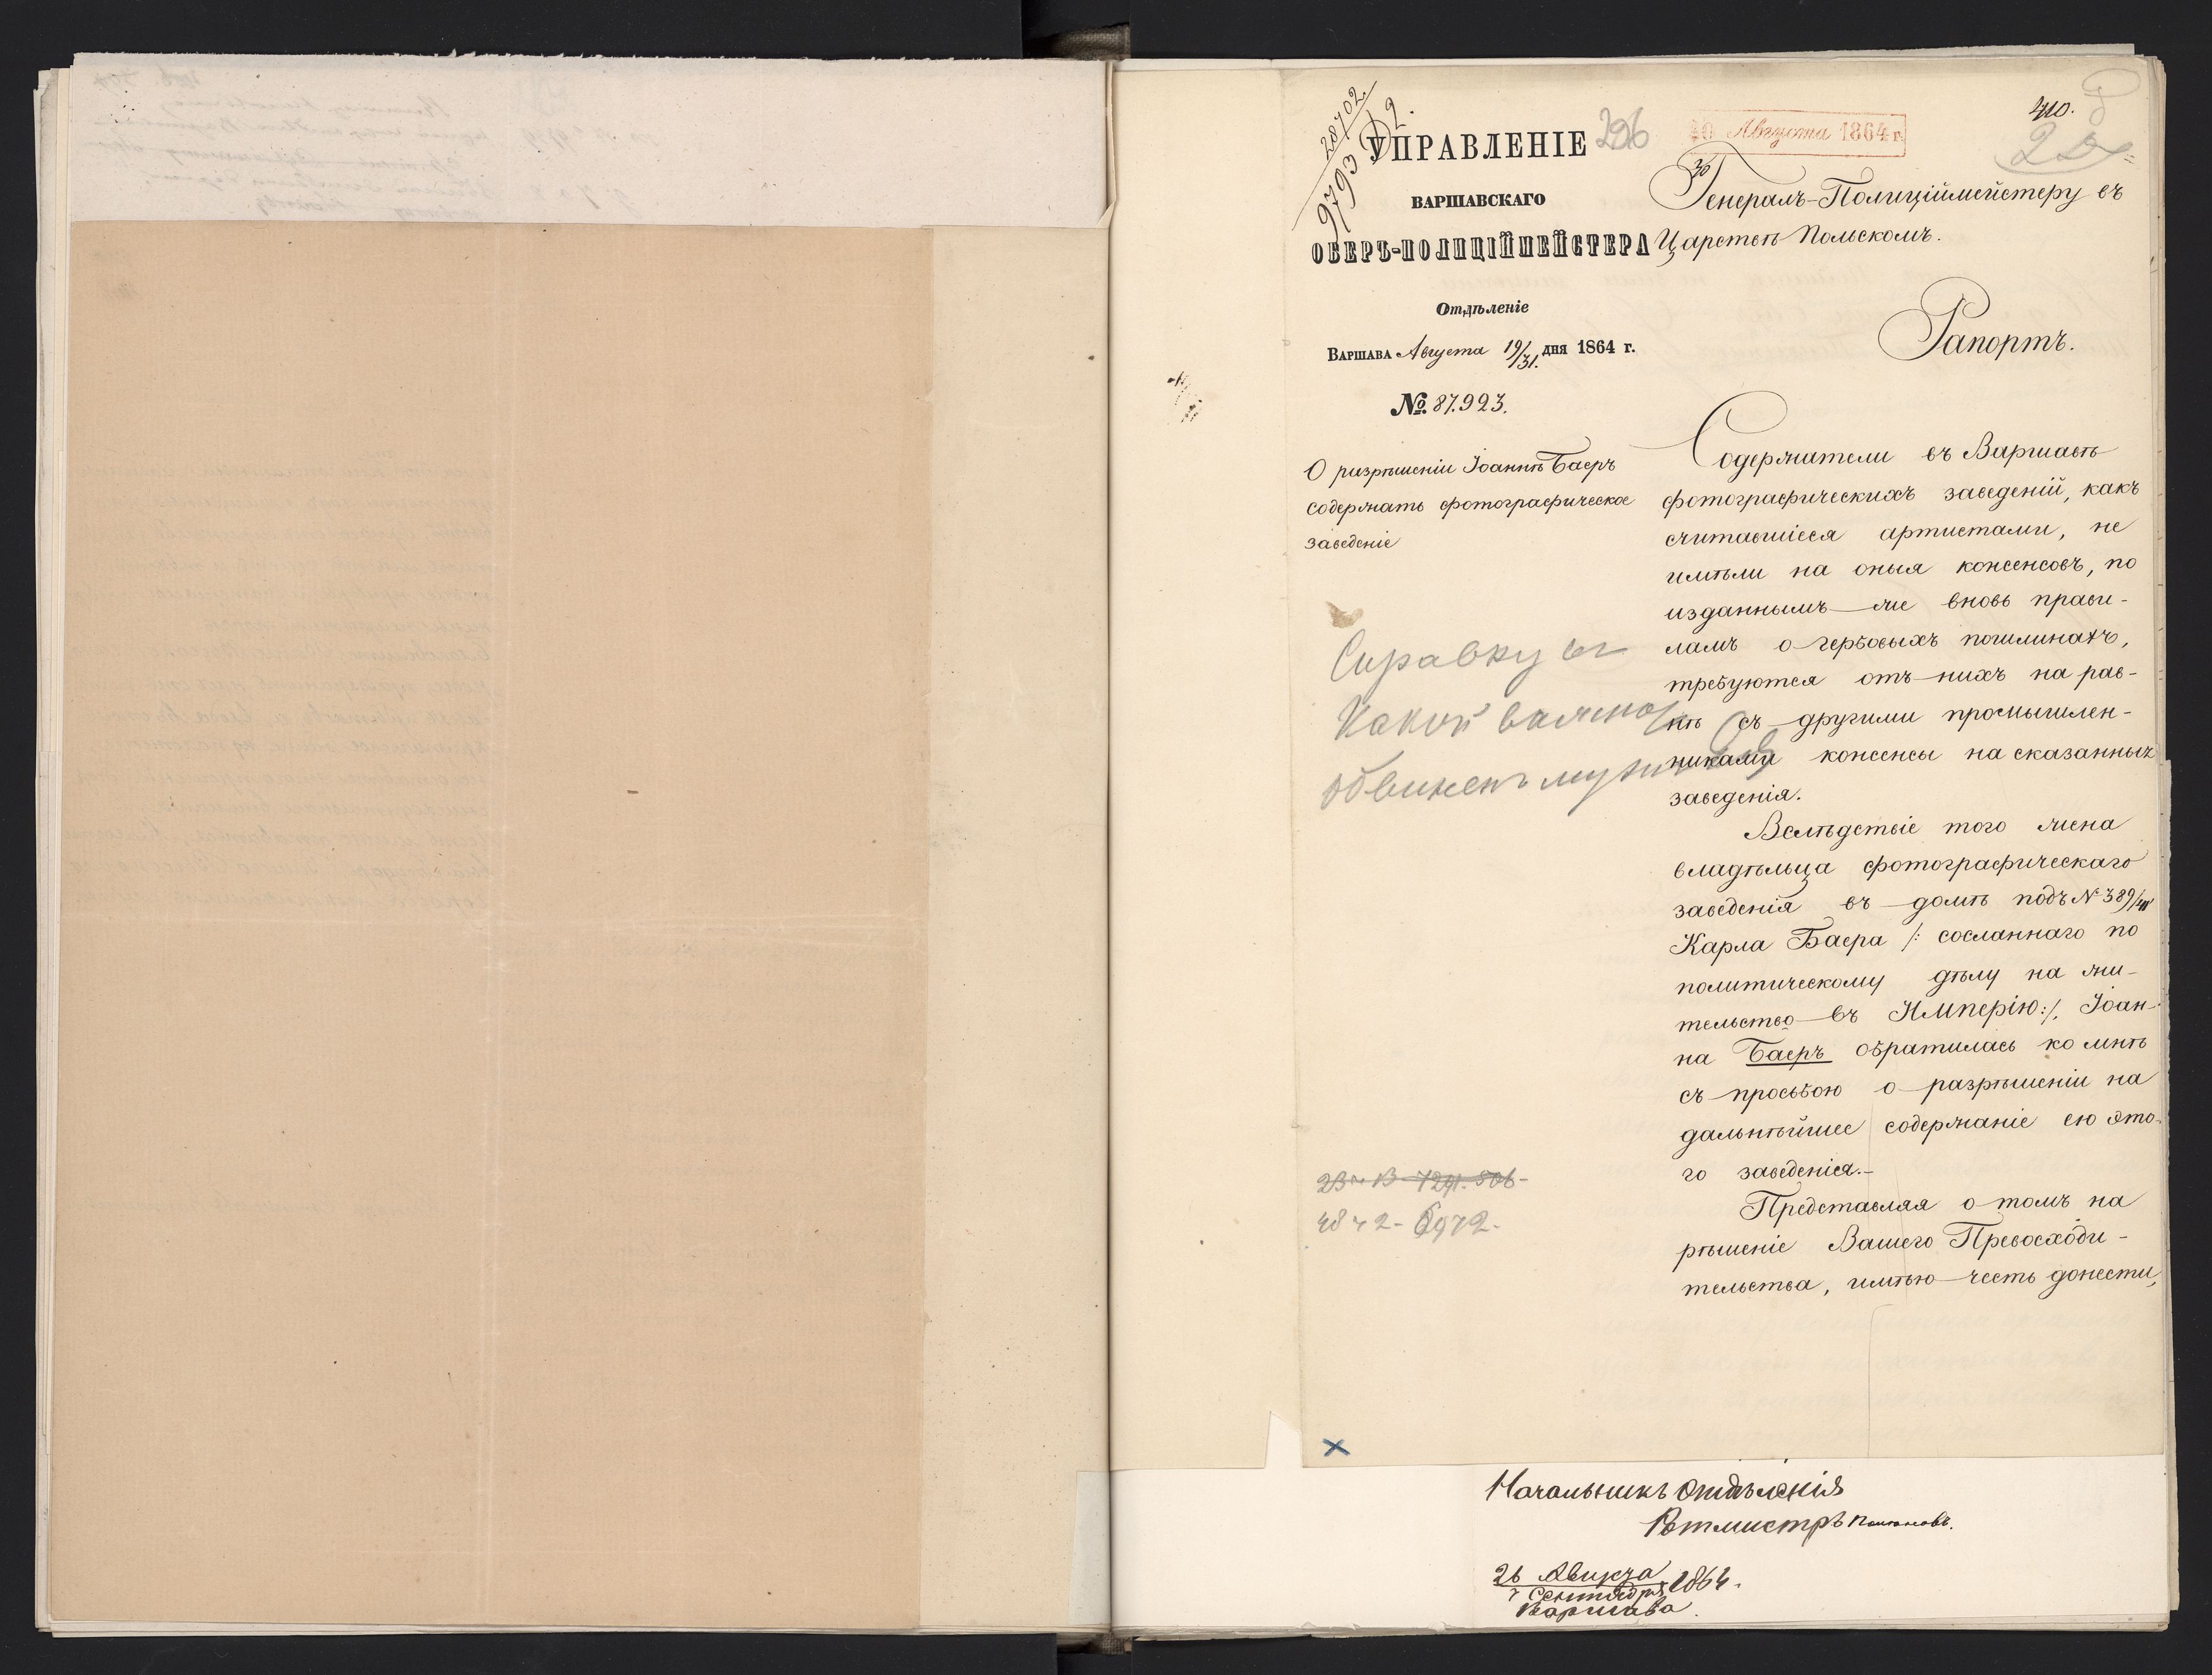 28702
9793 Д2.
УПРАВЛЕНІЕ 296
ВАРШАВСКАГО
ОБЕРЪ-ПОЛИЦІЙМЕЙСТЕРА
Отдѣленіе
ВАРШАВА Августа 19/31. дня 1864 г.
№ 87.923.
О разрѣшеніи Іоаннѣ Баеръ
содержать фотографическое
заведеніе
Справку
Какой
обвиненъ мужъ
4872-6972-
Августа 1864 г.
410.
Генералъ-Полиціймейстеру въ
Царствѣ Польскомъ.
Рапортъ.
Содержатели въ Варшавѣ
фотографическихъ заведеній, какъ
считавшіеся артистами, не
имѣли на оныя консенсовъ, по
изданнымъ же вновь прави-
ламъ о гербовыхъ пошлинахъ,
требуются отъ нихъ на рав-
нѣ съ другими промышлен-
никами консенсы на сказанныя
заведенія.
Вслѣдствіе того жена
владѣльца фотографическаго
заведенія въ домѣ подъ № 389/
Карла Баера /: сосланнаго по
политическому дѣлу на жи-
тельство въ Имперію:/, Іоан-
на Баеръ обратилась ко мнѣ
съ просьбою о разрѣшеніи на
дальнѣйшее содержаніе ею это-
го заведенія.-
Представляя о томъ на
рѣшеніе Вашего Превосходи-
тельства, имѣю честь донести,
Начальникъ Отдѣленія
Ротмистръ
26 Августа
7 Сентября 1864.
Варшава.